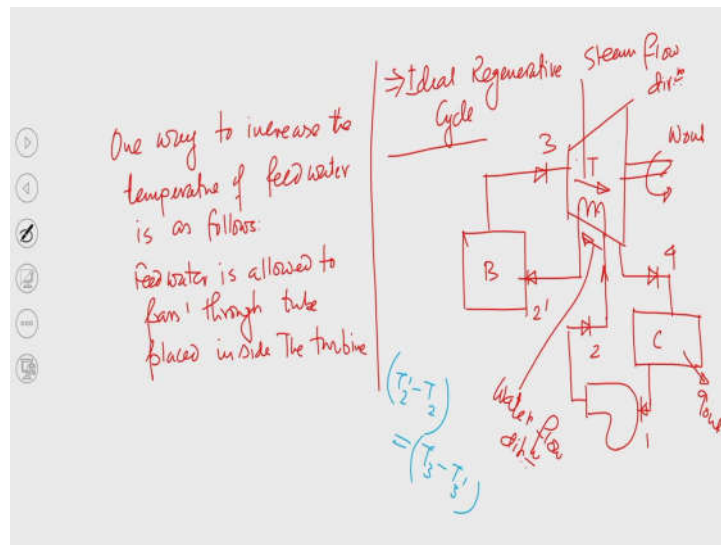 One way to increase the
temperature of feedwater
is as follows:
Feedwater is allowed to
pass through tube
placed inside The turbine
⇒ Ideal Regenerative
Cycle
Steam flow
dirⁿ
3
T
Wout
B
2'
4
2
C
qout
1
Water flow
dirⁿ
(T₂' - T₂)
= (T₃ - T₃')